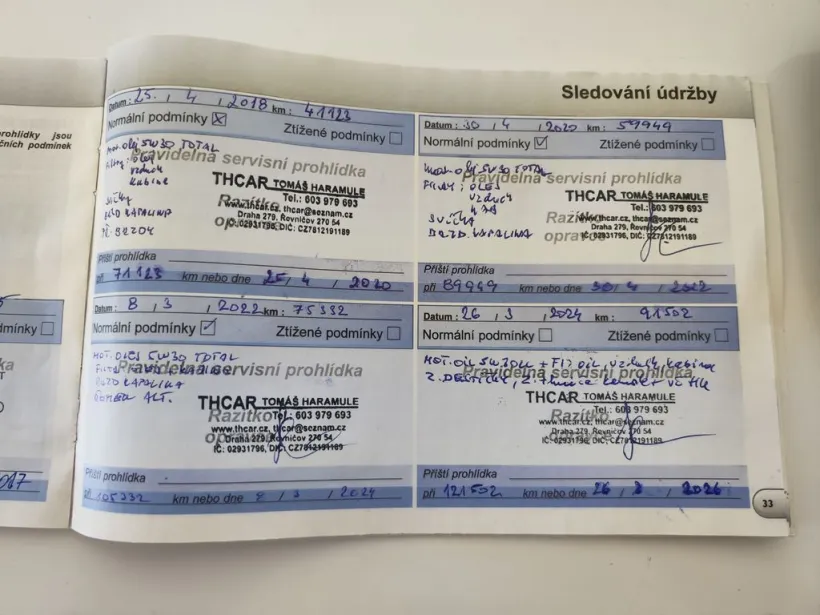 Sledování údržby
rohlídky jsou
čních podmínek
Datum : 25. / 4 / 2018 km : 41123
Normální podmínky ☒ Ztížené podmínky ☐
MOT. OLEJ 5W30 TOTAL
Pravidelná servisní prohlídka
OLEJ
VZDUCH
KABINA
SVÍČKY
THCAR TOMÁŠ HARAMULE
Tel.: 603 979 693
www.thcar.cz, thcar@seznam.cz
Draha 279, Řevničov 270 54
IČ: 02931796, DIČ: CZ7812191189
Razítko
Příští prohlídka
při 71123 km nebo dne 25 / 4 / 2020
Datum : 30 / 4 / 2020 km : 59949
Normální podmínky ☑ Ztížené podmínky ☐
MOT. OLEJ 5W30 TOTAL
Pravidelná servisní prohlídka
OLEJ
VZDUCH
SVÍČKY
BRZD. KAPALINA
THCAR TOMÁŠ HARAMULE
Tel.: 603 979 693
www.thcar.cz, thcar@seznam.cz
Draha 279, Řevničov 270 54
IČ: 02931796, DIČ: CZ7812191189
Příští prohlídka
při 89949 km nebo dne 30 / 4 / 2022
Datum : 8 / 3 / 2022 km : 75332
Normální podmínky ☑ Ztížené podmínky ☐
MOT. OLEJ 5W30 TOTAL
Pravidelná servisní prohlídka
BRZD KAPALINA
ŘEMEN ALT.
THCAR TOMÁŠ HARAMULE
Razítko
Tel.: 603 979 693
www.thcar.cz, thcar@seznam.cz
Draha 279, Řevničov 270 54
IČ: 02931796, DIČ: CZ7812191189
Příští prohlídka
při 105332 km nebo dne 8 / 3 / 2024
Datum : 26 / 3 / 2024 km : 91502
Normální podmínky ☐ Ztížené podmínky ☐
Pravidelná servisní prohlídka
THCAR TOMÁŠ HARAMULE
Razítko
Tel.: 603 979 693
www.thcar.cz, thcar@seznam.cz
Draha 279, Řevničov 270 54
IČ: 02931796, DIČ: CZ7812191189
Příští prohlídka
při 121502 km nebo dne 26 / 3 / 2026
33